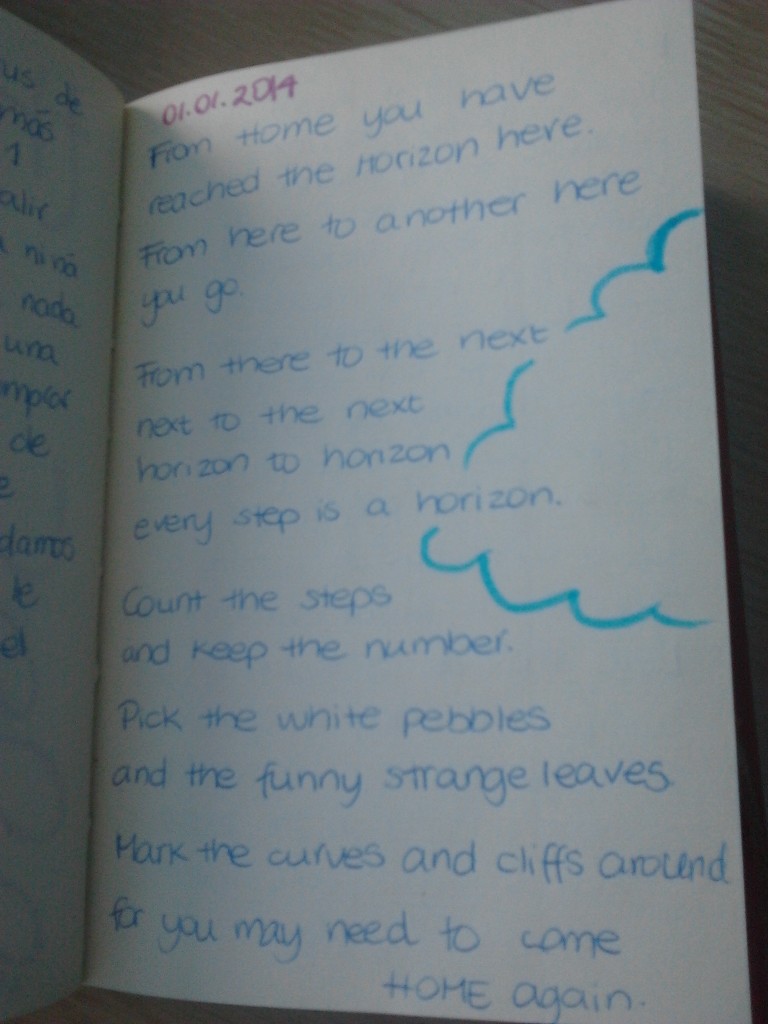 us de
más
1
alir
a niná
nada
una
mprar
de
e
damos
le
el
01.01.2014
From Home you have
reached the Horizon here.
From here to another here
you go.
From there to the next
next to the next
horizon to horizon
every step is a horizon.
Count the steps
and keep the number.
Pick the white pebbles
and the funny strange leaves.
Mark the curves and cliffs around
for you may need to come
HOME again.